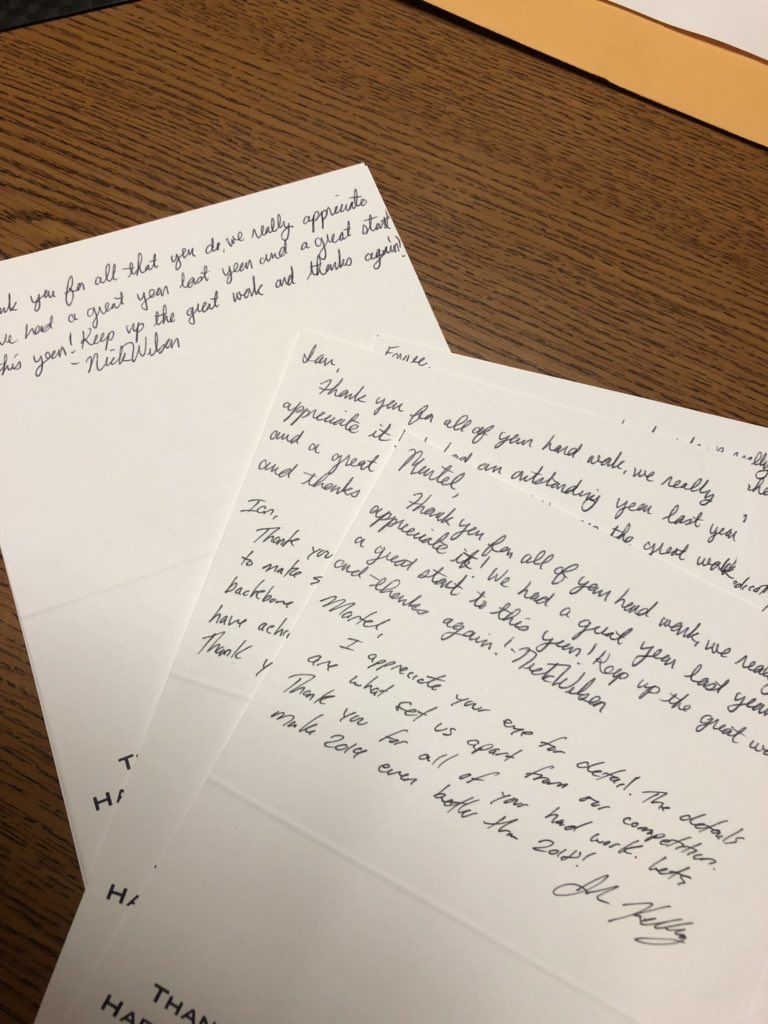 you for all that you do, we really appreciate
we had a great year last year and a great start
this year! Keep up the great work and thanks again!
- Nick Wilson
Ian,
Thank you for all of your hard work, we really
appreciate it
had an outstanding year last year
and a great
the great work
and thanks
Ian,
Thank you
to make s
backbone
have achi
Thank y
really
Martel,
Thank you for all of your hard work, we really
appreciate it! We had a great year last year
a great start to this year! Keep up the great wo
and thanks again! - Nick Wilson
Martel,
I appreciate your eye for detail. The details
are what set us apart from our competition.
Thank you for all of your hard work. Lets
make 2019 even better than 2018!
Kelly
T
HA
HA
THAN
HAR